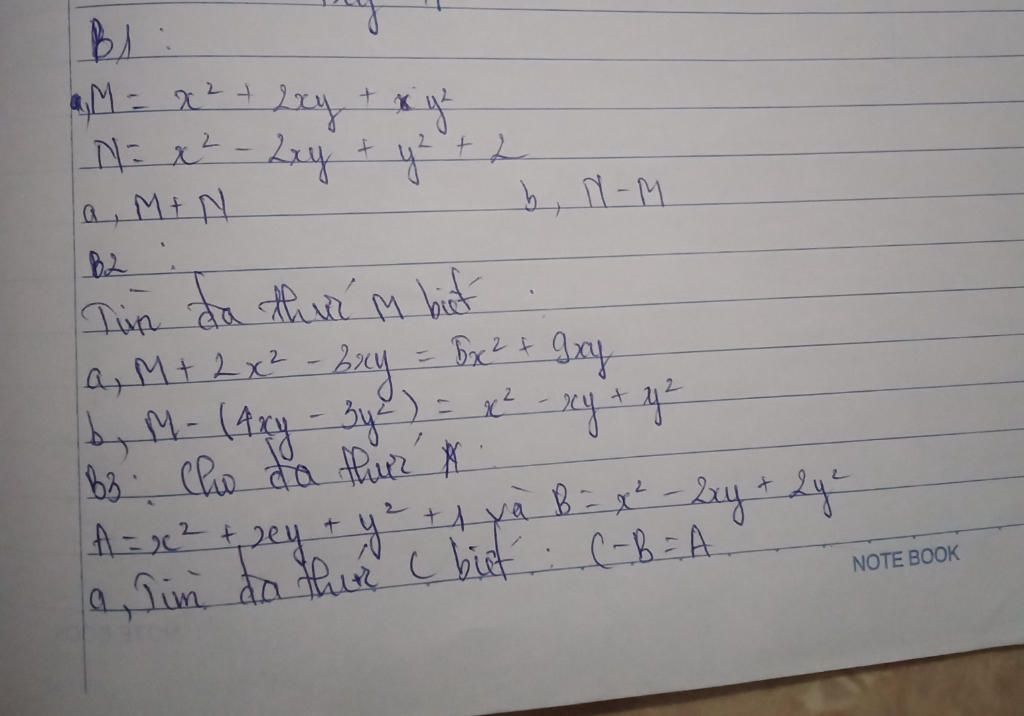 B1 :
a, M = x² + 2xy + y²
N = x² - 2xy + y² + 2
a, M + N b, N - M
B2 :
Tìm đa thức M biết
a, M + 2x² - 3xy = 5x² + 9xy
b, M - (4xy - 3y²) = x² - xy + y²
B3 : Cho đa thức
A = x² + xy + y² + 1 và B = x² - 2xy + 2y²
a, Tìm đa thức C biết : C - B = A
NOTE BOOK